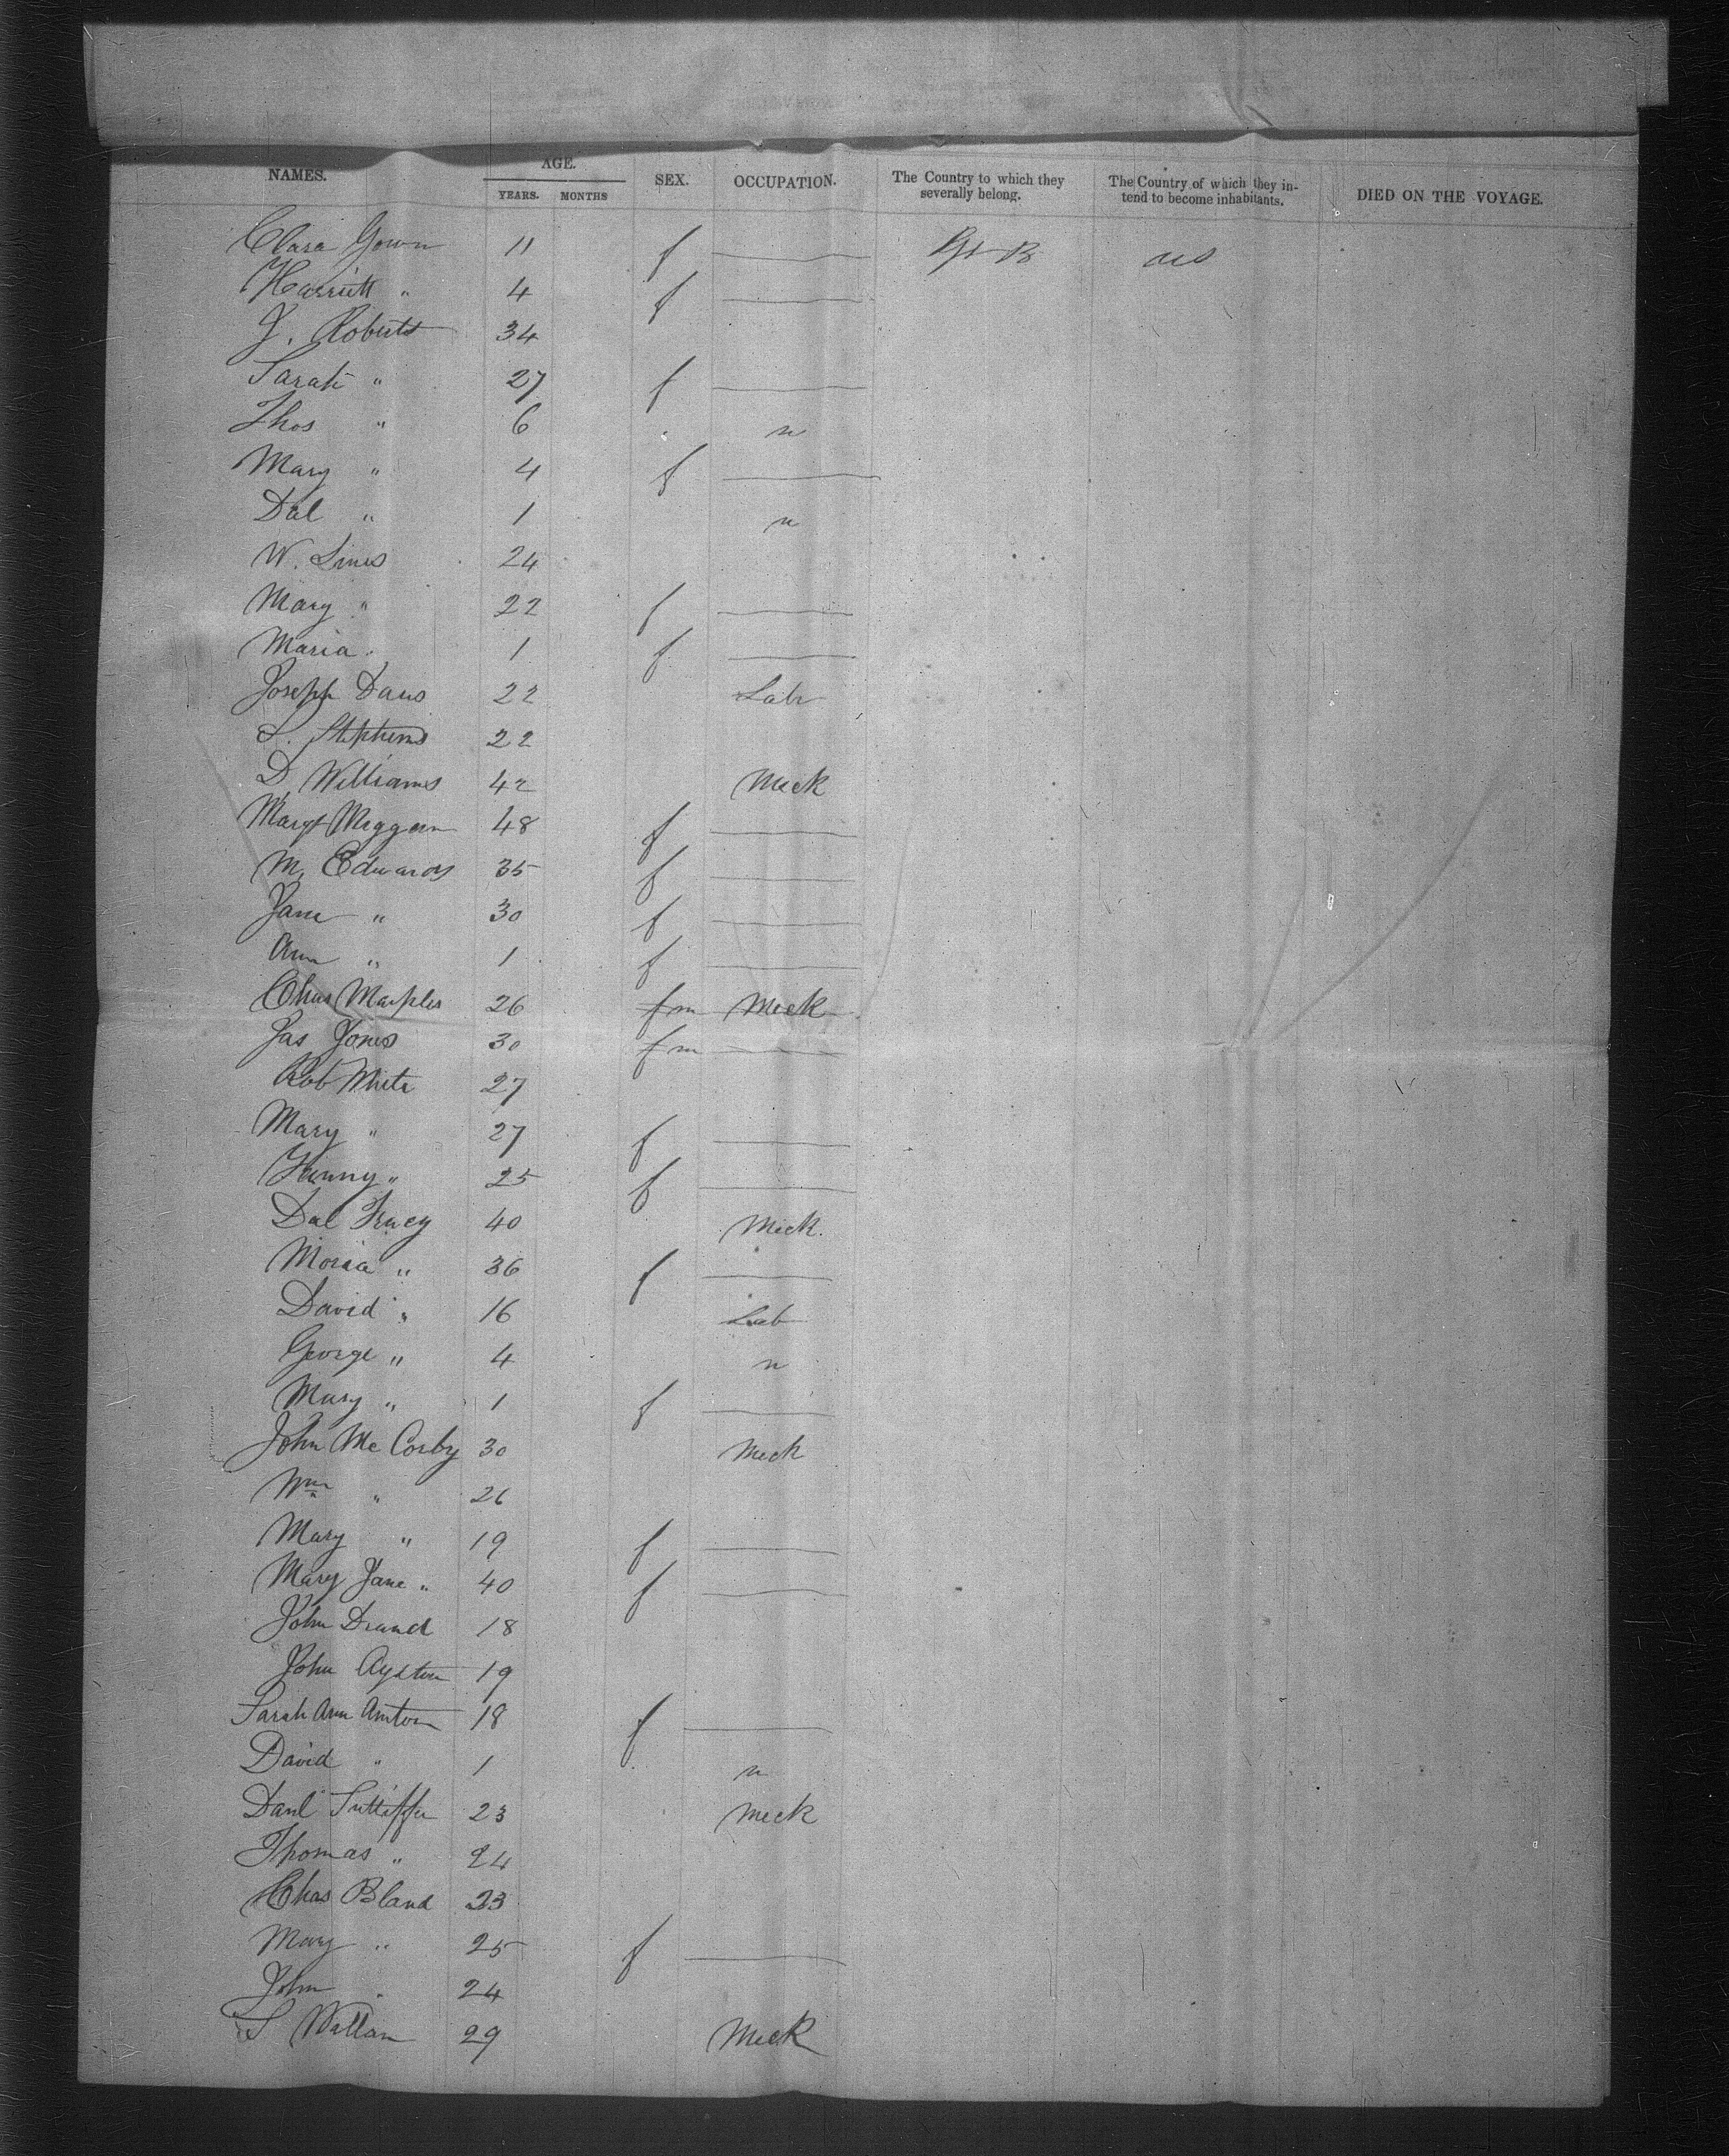 NAMES. AGE. SEX. OCCUPATION. The Country to which they severally belong. The Country of which they intend to become inhabitants. DIED ON THE VOYAGE.
YEARS. MONTHS
Clara Gown 11 f — Gt B US
Harriett " 4 f —
J. Roberts 34
Sarah " 27 f —
Thos " 6 n
Mary " 4 f —
Dal " 1 n
W. Lines 24
Mary " 22 f —
Maria " 1 f —
Joseph Daus 22 Lab
S. Stephens 22
D. Williams 42 Meck
Margt 48 f —
M. Edwards 35 f —
Jane " 30 f —
Ann " 1 f —
Chas Marples 26 f m Meck
Jas Jones 30 f m —
Rob 27
Mary " 27 f —
Fanny " 25 f —
Dal Tracy 40 Meck.
Moria " 36 f —
David " 16 Lab
George " 4 n
Mary " 1 f —
John Mc Corby 30 Meck
Wm " 26
Mary " 19 f —
Mary Jane " 40 f —
John 18
John 19
Sarah Ann Anton 18 f —
David " 1 n
Danl 23 Meck
Thomas " 24
Chas Bland 23
Mary " 25 f —
John " 24
S 29 Meck